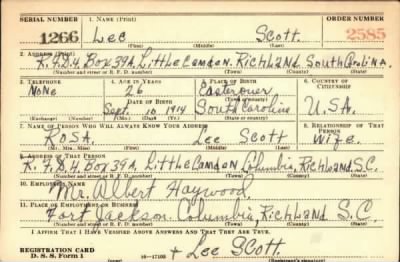 SERIAL NUMBER 1. NAME (Print) ORDER NUMBER
1266 Lee Scott. 2585
(First) (Middle) (Last)
2. ADDRESS (Print)
R.F.D.4. Box 39A. Little Camden. Richland South Carolina.
(Number and street or R. F. D. number) (Town) (County) (State)
3. TELEPHONE 4. AGE IN YEARS 5. PLACE OF BIRTH 6. COUNTRY OF CITIZENSHIP
None 26 Eastover
DATE OF BIRTH (Town or county)
Sept. 10 1914 South Carolina U.S.A.
(Exchange) (Number) (Mo.) (Day) (Yr.) (State or country)
7. NAME OF PERSON WHO WILL ALWAYS KNOW YOUR ADDRESS 8. RELATIONSHIP OF THAT PERSON
Rosa Lee Scott Wife.
(Mr., Mrs., Miss) (First) (Middle) (Last)
9. ADDRESS OF THAT PERSON
R.F.D.4. Box 39A, Little Camden Columbia, Richland S.C.
(Number and street or R. F. D. number) (Town) (County) (State)
10. EMPLOYER'S NAME
Mr. Albert Haywood.
11. PLACE OF EMPLOYMENT OR BUSINESS
Fort Jackson. Columbia, Richland S.C.
(Number and street or R. F. D. number) (Town) (County) (State)
I AFFIRM THAT I HAVE VERIFIED ABOVE ANSWERS AND THAT THEY ARE TRUE.
REGISTRATION CARD
D. S. S. Form 1 16—17105 + Lee Scott.